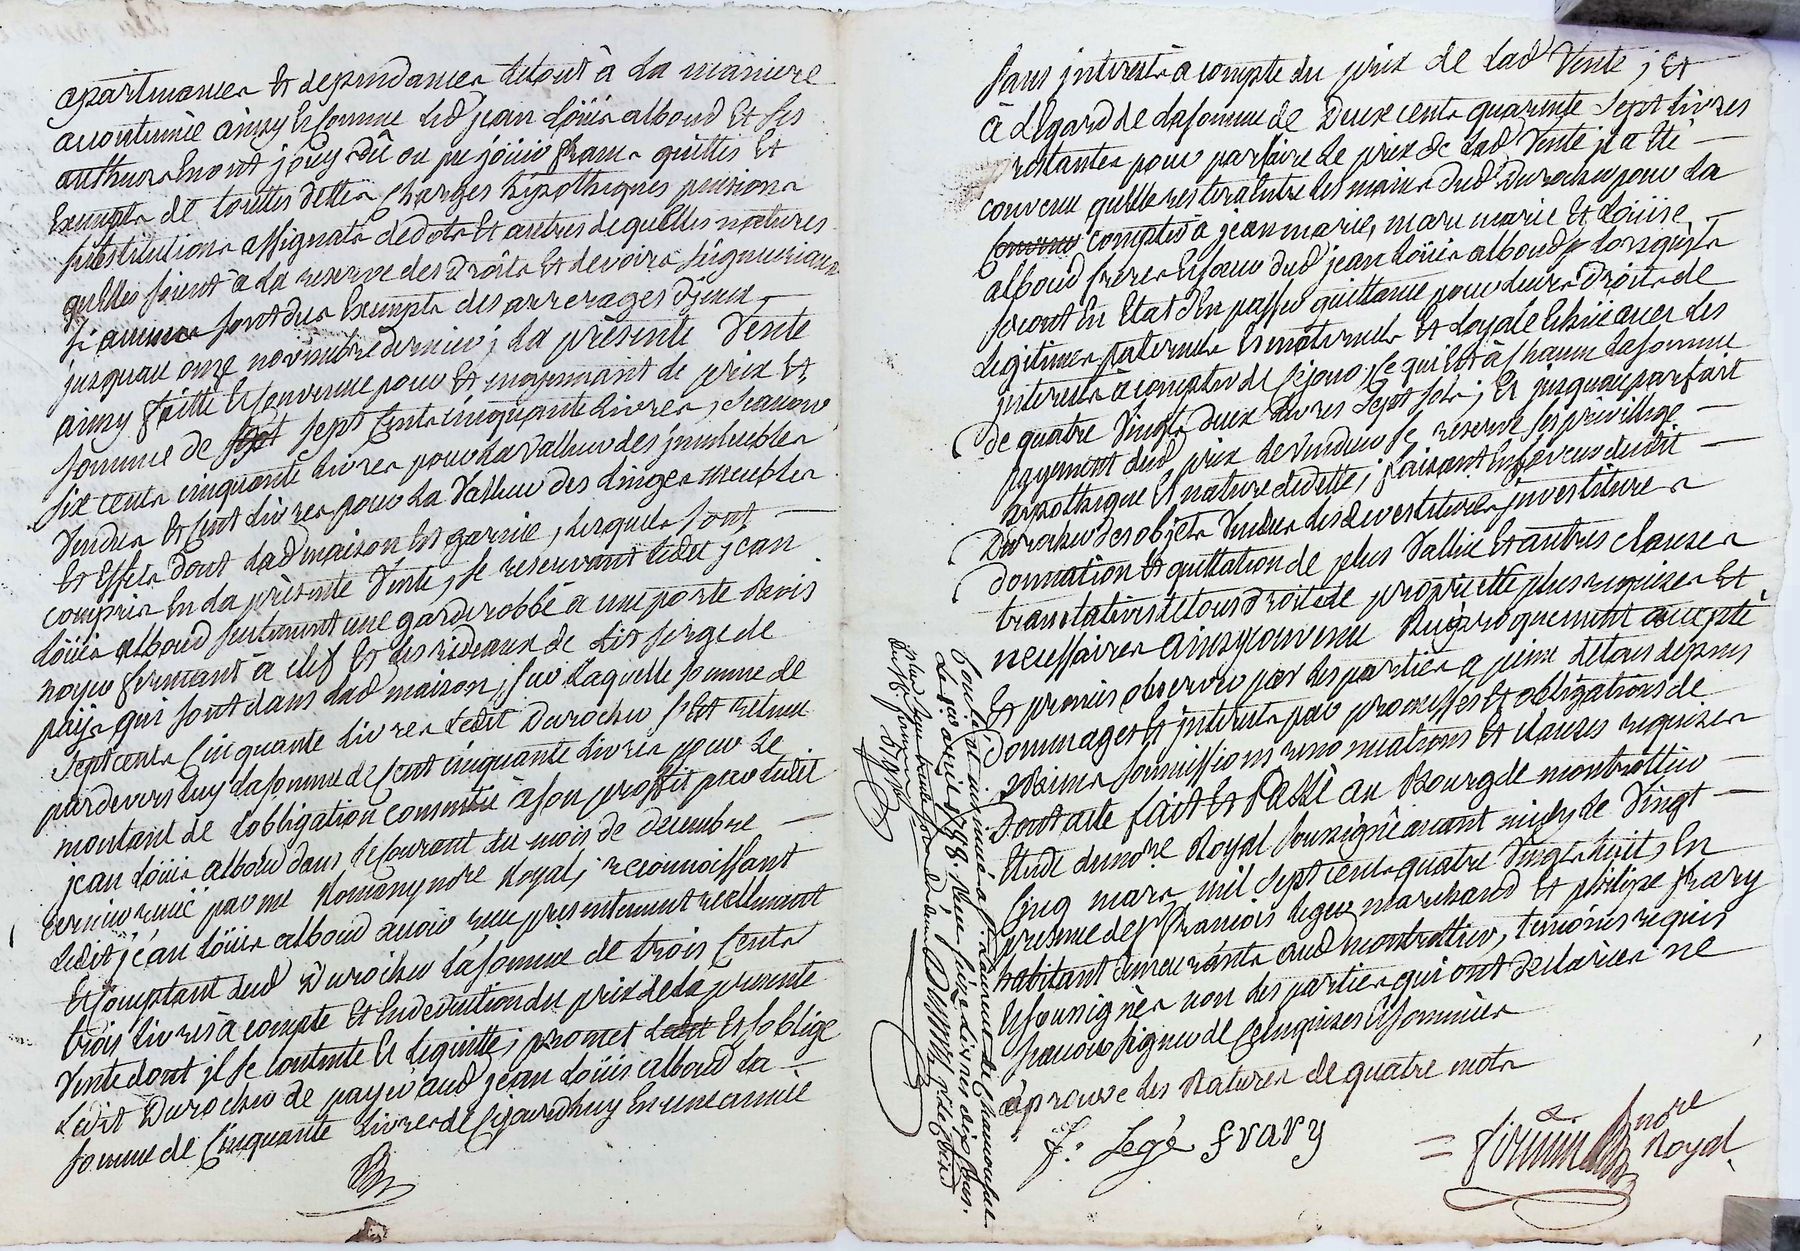 apartinances et dependances letout à la maniere
accoutumée ainsy et comme led jean loüis alboud et ses
autheurs en ont jouy dû ou pu joüir francs quittes et
exempts de touttes dettes charges hipotheques pensions
substitutions assignats de dots et autres de quelles natures
quelles soient à la reserve des droits et devoirs seigneuriaux
si aucuns sont dus exempts des arrerages diceux
jusquau onze novembre dernier ; la présente vente
ainsy faitte et convenue pour et moyennant le prix et
somme de sept sept cents cinquante livres, scavoir
six cents cinquante livres pour la valleur des jmmeubles
vendus et cent livres pour la valleur des linges meubles
et effets dont lad maison est garnie, lesquels sont
compris en la présente vente, se reservant ledit jean
loüis alboud seulement une garderobbe a une porte bois
noyer fermant à clef et les rideaux de lit serge de
païs qui sont dans lad maison, sur laquelle somme de
sept cents cinquante livres ledit Durocher s'est retenu
pardevers luy la somme de cent cinquante livres pour le
montant de lobligation commitée à son proffit par ledit
jean loüis alboud dans le courant du mois de decembre
dernier receüe par me Romany nore Royal, reconnoissant
ledit jean loüis alboud avoir reçu presentement reellement
et comptant dud Durocher la somme de trois cents
trois livres à compte et en deduction du prix de la presente
vente dont jl se contente et lequitte ; promet ledit et soblige
ledit Durocher de payer aud jean loüis alboud la
somme de cinquante livres de cejourdhuy en une année
sans jnterests à compte du prix de lad vente ; et
à légard de la somme de Deux cents quarente sept livres
restantes pour parfaire le prix de lad vente jl a été
convenu quelle restera entre les mains dud Durocher pour la
comptér à jean marie, marc marie et loüise
alboud freres et sœur dud jean loüis alboud lorsquils
seront en etat d'en passer quittance pour leurs droits de
legitimes paternels et maternels et loyale echüe avec les
jnterests à compter de ce jour, ce qui est à chacun la somme
de quatre vingts deux livres sept sols ; et jusquau parfait
payement dud prix le vendeur se reserve ses privillege
hipotheque et nature de dette ; faisant en faveur dudit
Durocher des objets vendus les devestitures jnvestitures
donnation et quittation de plus vallüe et autres clauses
translatives de tous droits de proprietté plus requises et
necessaires ainsy convenu reciproquement accepté
et promis observer par les parties a peine de tous depens
dommages et jnterests par promesses et obligations de
biens soumissions renonciations et clauses requises
Dont acte fait et Passé au Bourg de montrottier
Etude du nore Royal soussigné avant midy le vingt
cinq mars mil sept cents quatre vingts huit, en
presence de sr francois legé marchand et philipe frary
habitant demeurants aud montrottier, temoins requis
et soussignés non les parties qui ont declarées ne
scavoir signer de ce enquises et sommées
aprouve les Ratures de quatre mots
f: Legé frary
nore Royal
Controllé et insinué a St laurent de Chamousset
Le six avril 1788. Reçu seize livres dix sous.